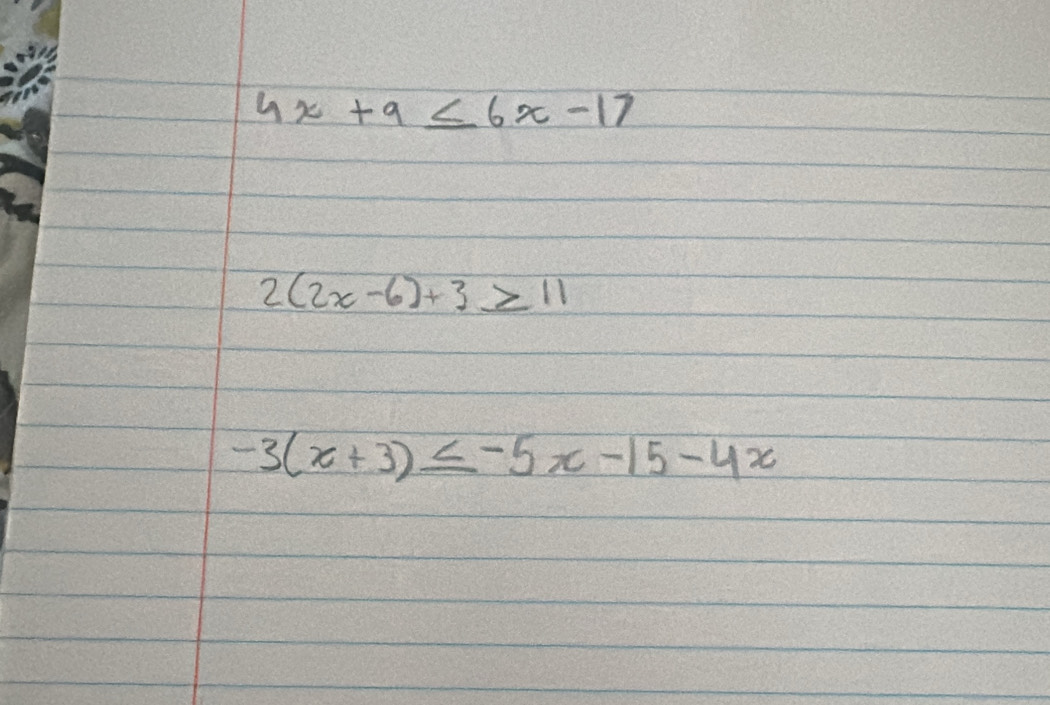 4x + 9 ≤ 6x - 17
2(2x - 6) + 3 ≥ 11
-3(x + 3) ≤ -5x - 15 - 4x